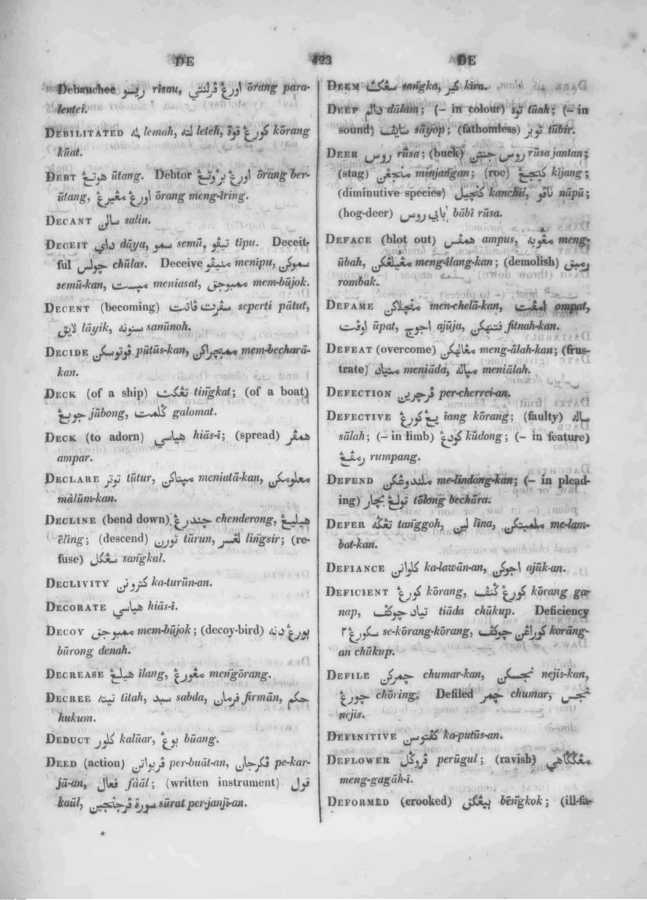 DE
423
DE
Debauchee ريسو risau, اورڠ ڤرلنتي ōrang para-
lentei.
DEBILITATED لمه lemah, لته leteh, كورڠ قوة kōrang
kūat.
DEBT هوتڠ ūtang. Debtor اورڠ برهوتڠ ōrang ber-
ūtang, اورڠ مڠيرڠ ōrang meng-īring.
DECANT سالن salin.
DECEIT داي dāya, سمو semū, تيڤو tīpu. Deceit-
ful چولس chūlas. Deceive منيڤو menīpu, سموكن
semū-kan, meniasat, ممبوجق mem-būjok.
DECENT (becoming) سڤرت ڤاتت seperti pātut,
لايق lāyik, سنونه sanūnoh.
DECIDE ڤوتوسكن pūtūs-kan, ممبچراكن mem-becharā-
kan.
DECK (of a ship) تڠكت tiṅgkat; (of a boat)
جوبڠ jūbong, ڬلمت galomat.
DECK (to adorn) هياسي hiās-i; (spread) همڤر
ampar.
DECLARE توتر tūtur, مپتاكن meniatā-kan, معلومكن
mālūm-kan.
DECLINE (bend down) چندرڠ chenderong, هيليڠ
ēling; (descend) تورن tūrun, لڠسر liṅgsir; (re-
fuse) سڠكل saṅgkal.
DECLIVITY كتورونن ka-turūn-an.
DECORATE هياسي hiās-i.
DECOY ممبوجق mem-būjok; (decoy-bird) بورڠ دنه
būrong denah.
DECREASE هيلڠ ilang, مڠورڠ meṅgōrang.
DECREE تيته titah, سبد sabda, فرمان firmān, حكم
hukum.
DEDUCT كلور kalūar, بوڠ būang.
DEED (action) ڤربواتن per-buāt-an, ڤكرجان pe-kar-
jā-an, فعال fāāl; (written instrument) قول
kaūl, سورة ڤرجنجين sūrat per-janjī-an.
DEEM سڠك saṅgka, كير kīra.
DEEP دالم dālam; (– in colour) توه tūah; (– in
sound) سايڤ sāyop; (fathomless) توبر tūbir.
DEER روس rūsa; (buck) روس جنتن rūsa jantan;
(stag) منجاڠن minjāṅgan; (roe) كيجڠ kījang;
(diminutive species) كنچيل kanchil, ناڤو nāpū;
(hog-deer) بابي روس bābī rūsa.
DEFACE (blot out) همڤس ampus, مڠوبه meng-
ūbah, مڠيلڠكن meng-īlang-kan; (demolish) رمبق
rombak.
DEFAME منچلاكن men-chelā-kan, امڤت ompat,
اوڤت ūpat, اجوج ajūja, فتنهكن fitnah-kan.
DEFEAT (overcome) مڠالهكن meng-ālah-kan; (frus-
trate) منيادا meniāda, مپاله meniālah.
DEFECTION ڤرچرين per-cherrei-an.
DEFECTIVE يڠ كورڠ iang kōrang; (faulty) ساله
sālah; (– in limb) كودڠ kūdong; (– in feature)
رمڤڠ rumpang.
DEFEND ملندوڠكن me-līndong-kan; (– in plead-
ing) تولڠ بچار tōlong bechāra.
DEFER تڠڬه taṅggoh, لين līna, ملمبتكن me-lam-
bat-kan.
DEFIANCE كلوانن ka-lawān-an, اجوكن ajūk-an.
DEFICIENT كورڠ kōrang, كورڠ ڬنڤ kōrang ga-
nap, تياد چوكڤ tiāda chūkup. Deficiency
سكورڠ٢ se-kōrang-kōrang, كوراڠن چوكڤ korāng-
an chūkup.
DEFILE چمركن chumar-kan, نجسكن nejis-kan,
چورڠ chōring. Defiled چمر chumar, نجس
nejis.
DEFINITIVE كڤتوسن ka-putūs-an.
DEFLOWER ڤروڬل perūgul; (ravish) مڠڬاڬهي
meng-gagāh-ī.
DEFORMED (crooked) بيڠكق bēṅgkok; (ill-fa-